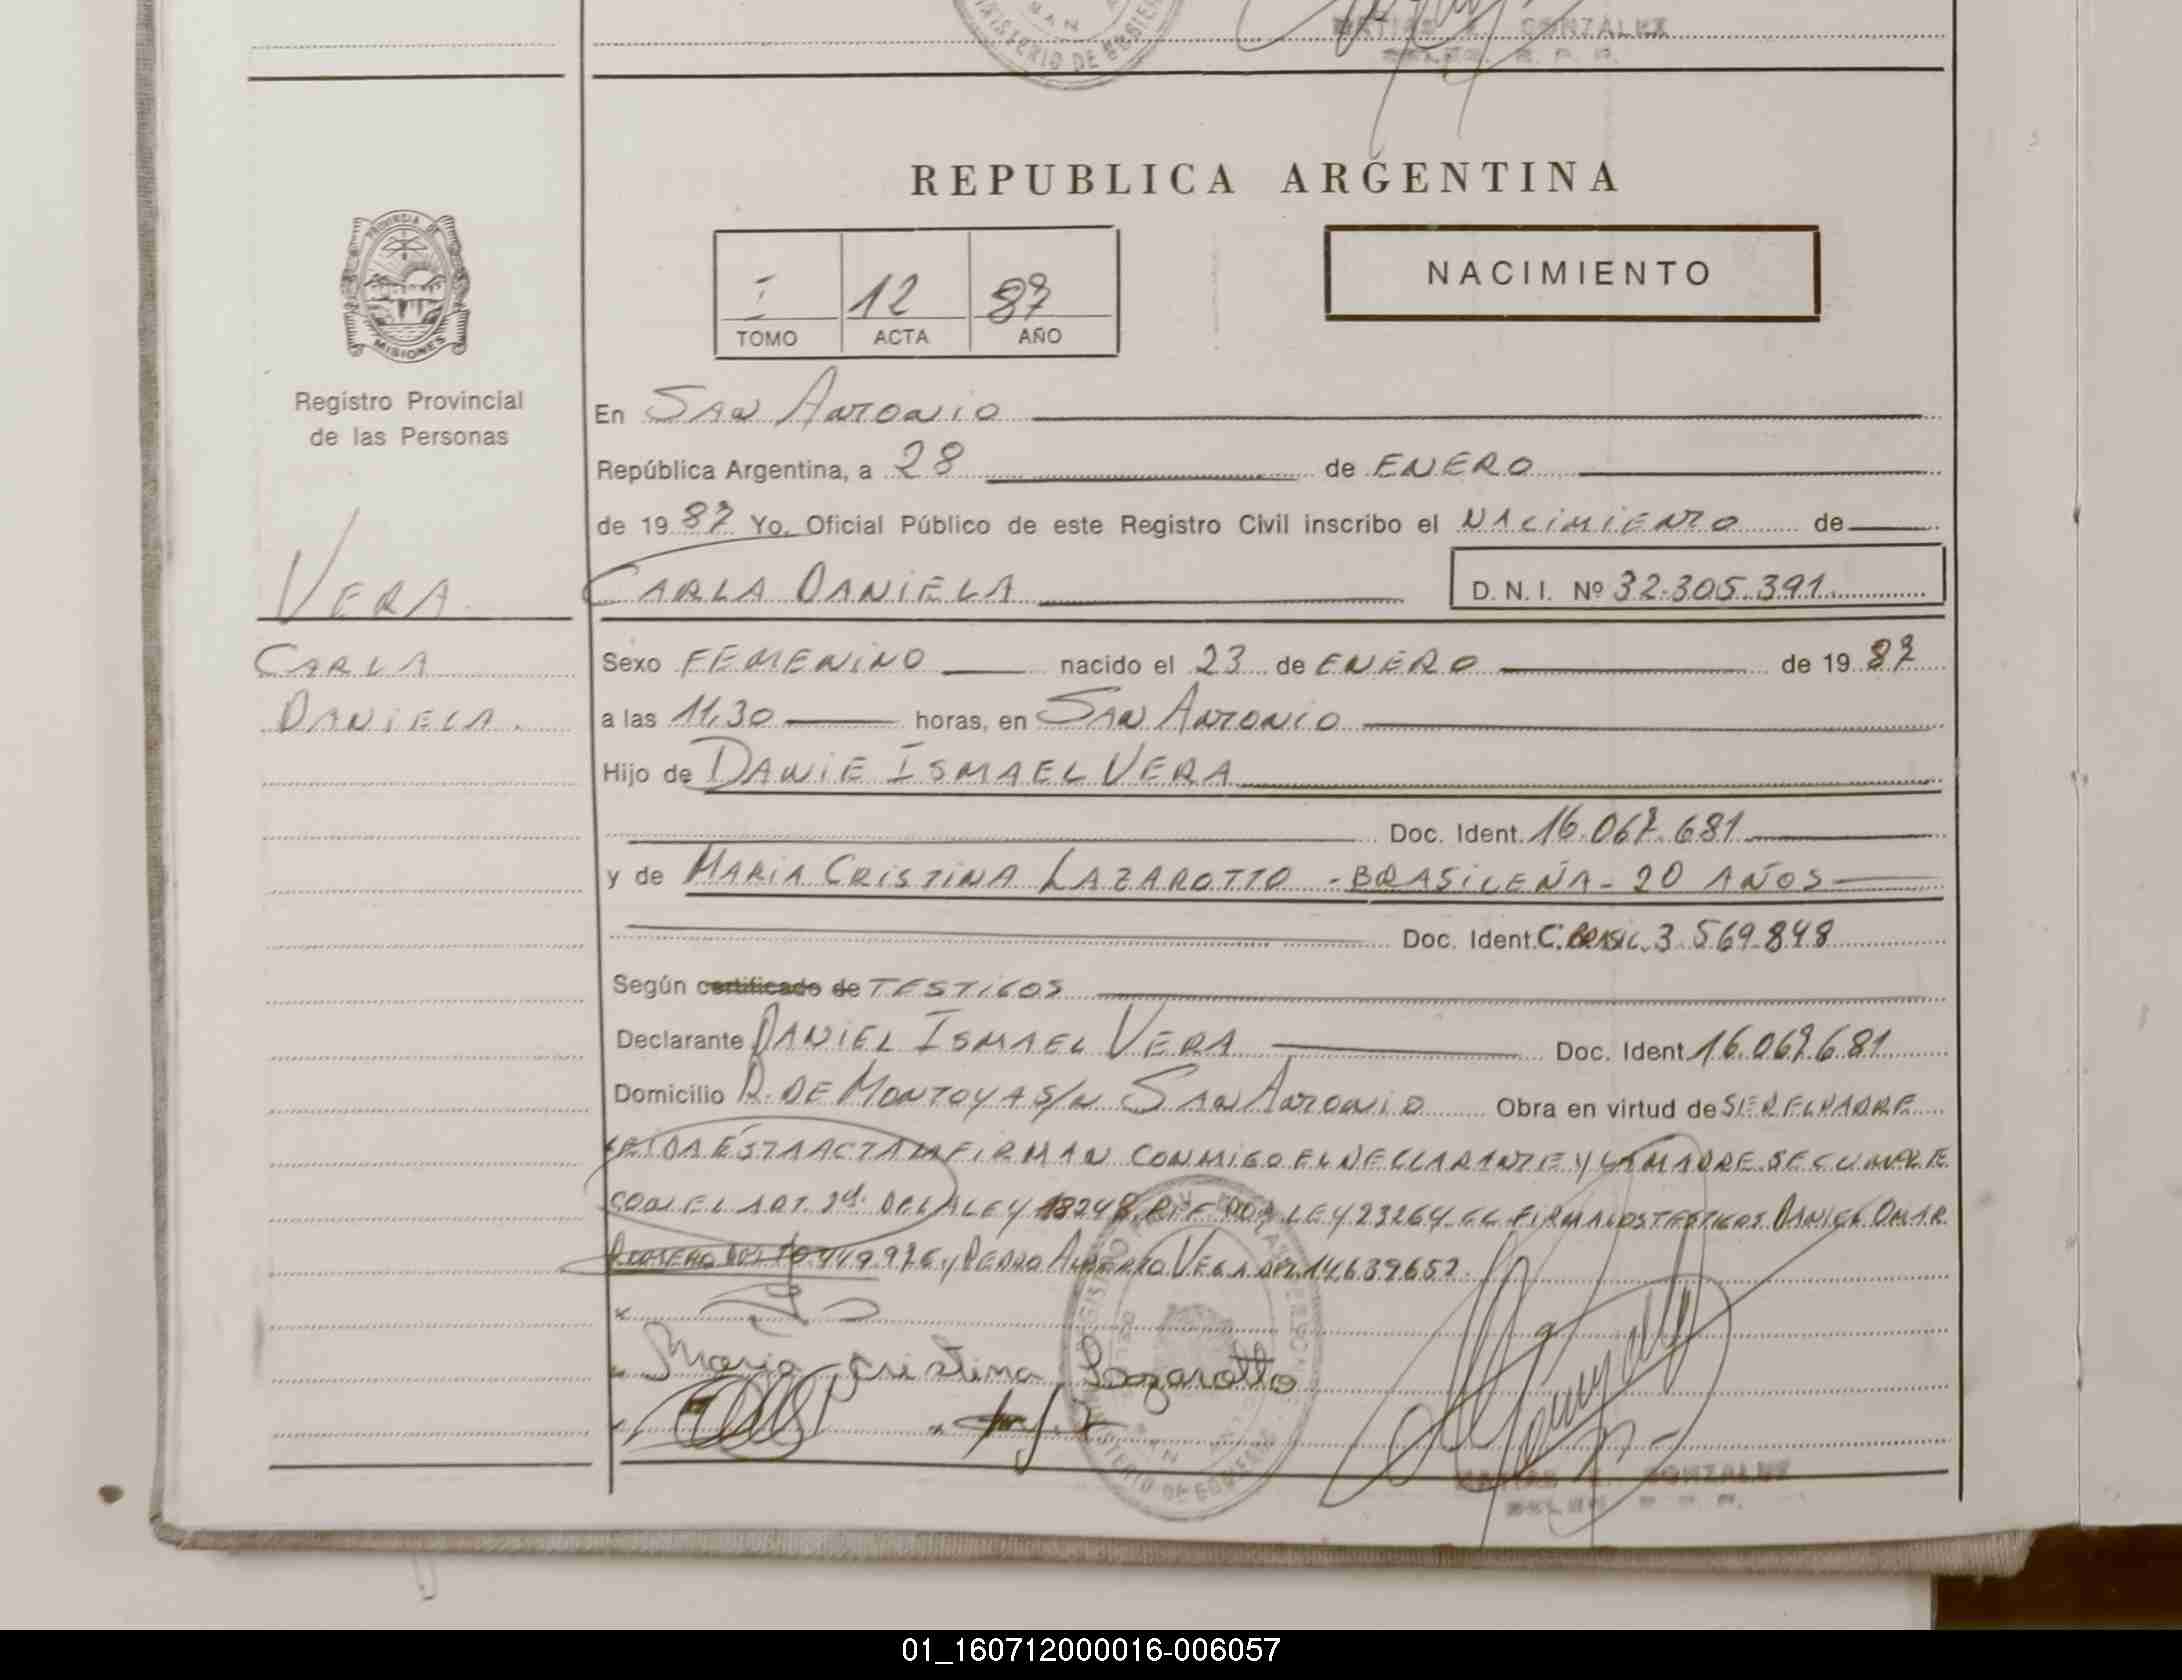 MINISTERIO DE
GONZALEZ
REPUBLICA ARGENTINA
NACIMIENTO
I 12 87
TOMO ACTA AÑO
PROVINCIA DE
MISIONES
Registro Provincial
de las Personas
VERA
CARLA
DANIELA.
En SAN ANTONIO
República Argentina, a 28 de ENERO
de 1987 Yo, Oficial Público de este Registro Civil inscribo el NACIMIENTO de
CARLA DANIELA D. N. I. Nº 32.305.391
Sexo FEMENINO nacido el 23 de ENERO de 1987
a las 11,30 horas, en SAN ANTONIO
Hijo de DANIE ISMAEL VERA
Doc. Ident. 16.067.681
y de MARIA CRISTINA LAZAROTTO - BRASILEÑA - 20 AÑOS
Doc. Ident. C. 3.569.848
Según certificado de TESTIGOS
Declarante DANIEL ISMAEL VERA Doc. Ident 16.067.681
Domicilio R. DE MONTOYA S/N SAN ANTONIO Obra en virtud de SER EL PADRE
LEIDA ESTA ACTA LA FIRMAN CONMIGO EL DECLARANTE Y LA MADRE. SE CUMPLE
CON EL ART. 2d. DE LA LEY 18248, LEY 23264 FIRMAN LOS TESTIGOS DANIEL OMAR
ROMERO Y PEDRO ALBERTO VEGA DNI 14639652.
Maria Cristina Lazarotto
GONZALEZ
01_160712000016-006057